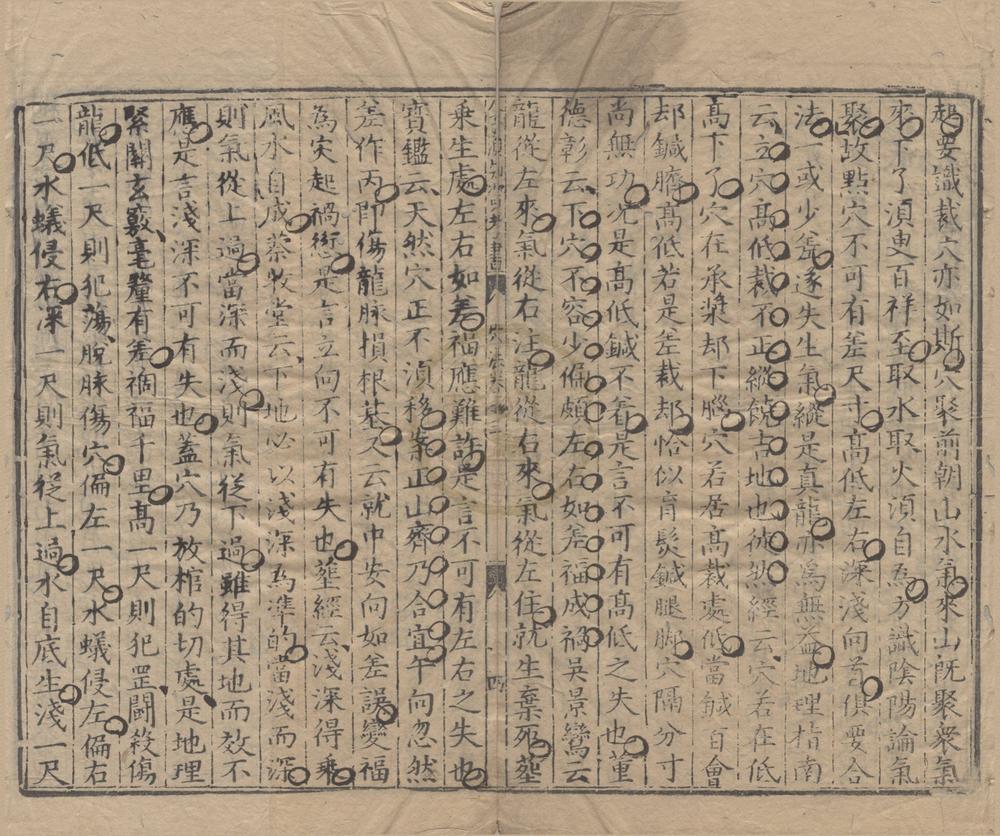 要識裁穴亦如斯穴聚前朝山水氣來山旣聚衆氣
來下了湏更百祥至取水取火湏自爲方識隂陽論氣
聚故㸃穴不可有差尺寸高低左右深淺向首俱要合
法一或少差遂失生氣縱是真龍亦爲無益地理指南
云立穴高低裁不正縱饒吉地也徒經云穴若在低
高下了穴在承漿却下腦穴若居高裁處低當鍼百會
却鍼臍高低若是差裁却恰似盲醫鍼腿脚穴隔分寸
尚無功况是高低鍼不着是言不可有高低之失也董
德彰云下穴不容少偏頗左左右如差福成禍吳景鸞云
龍從左來氣從右注龍從右來氣從左住就生棄死塟
穴法
四
乗生處左右如差福應難許是言不可有左右之失也
寳鑑云天然穴正不湏移案正山齊乃合宜午向忽然
差作丙即傷龍脉損根基又云就中安向如差誤變福
為灾起禍衝是言立向不可有失也塟經云淺深得乗
風水自成蔡牧堂云下地必以淺深為準的當淺而深
則氣從上過當深而淺則氣從下過雖得其地而效不
應是言淺深不可有失也蓋穴乃放棺的切處是地理
緊關玄竅毫釐有差禍福千里高一尺則犯罡鬬殺傷
龍低一尺則犯蕩脫脉傷穴偏左一尺水蟻侵左偏右
一尺水蟻侵右深一尺則氣從上過水自底生淺一尺